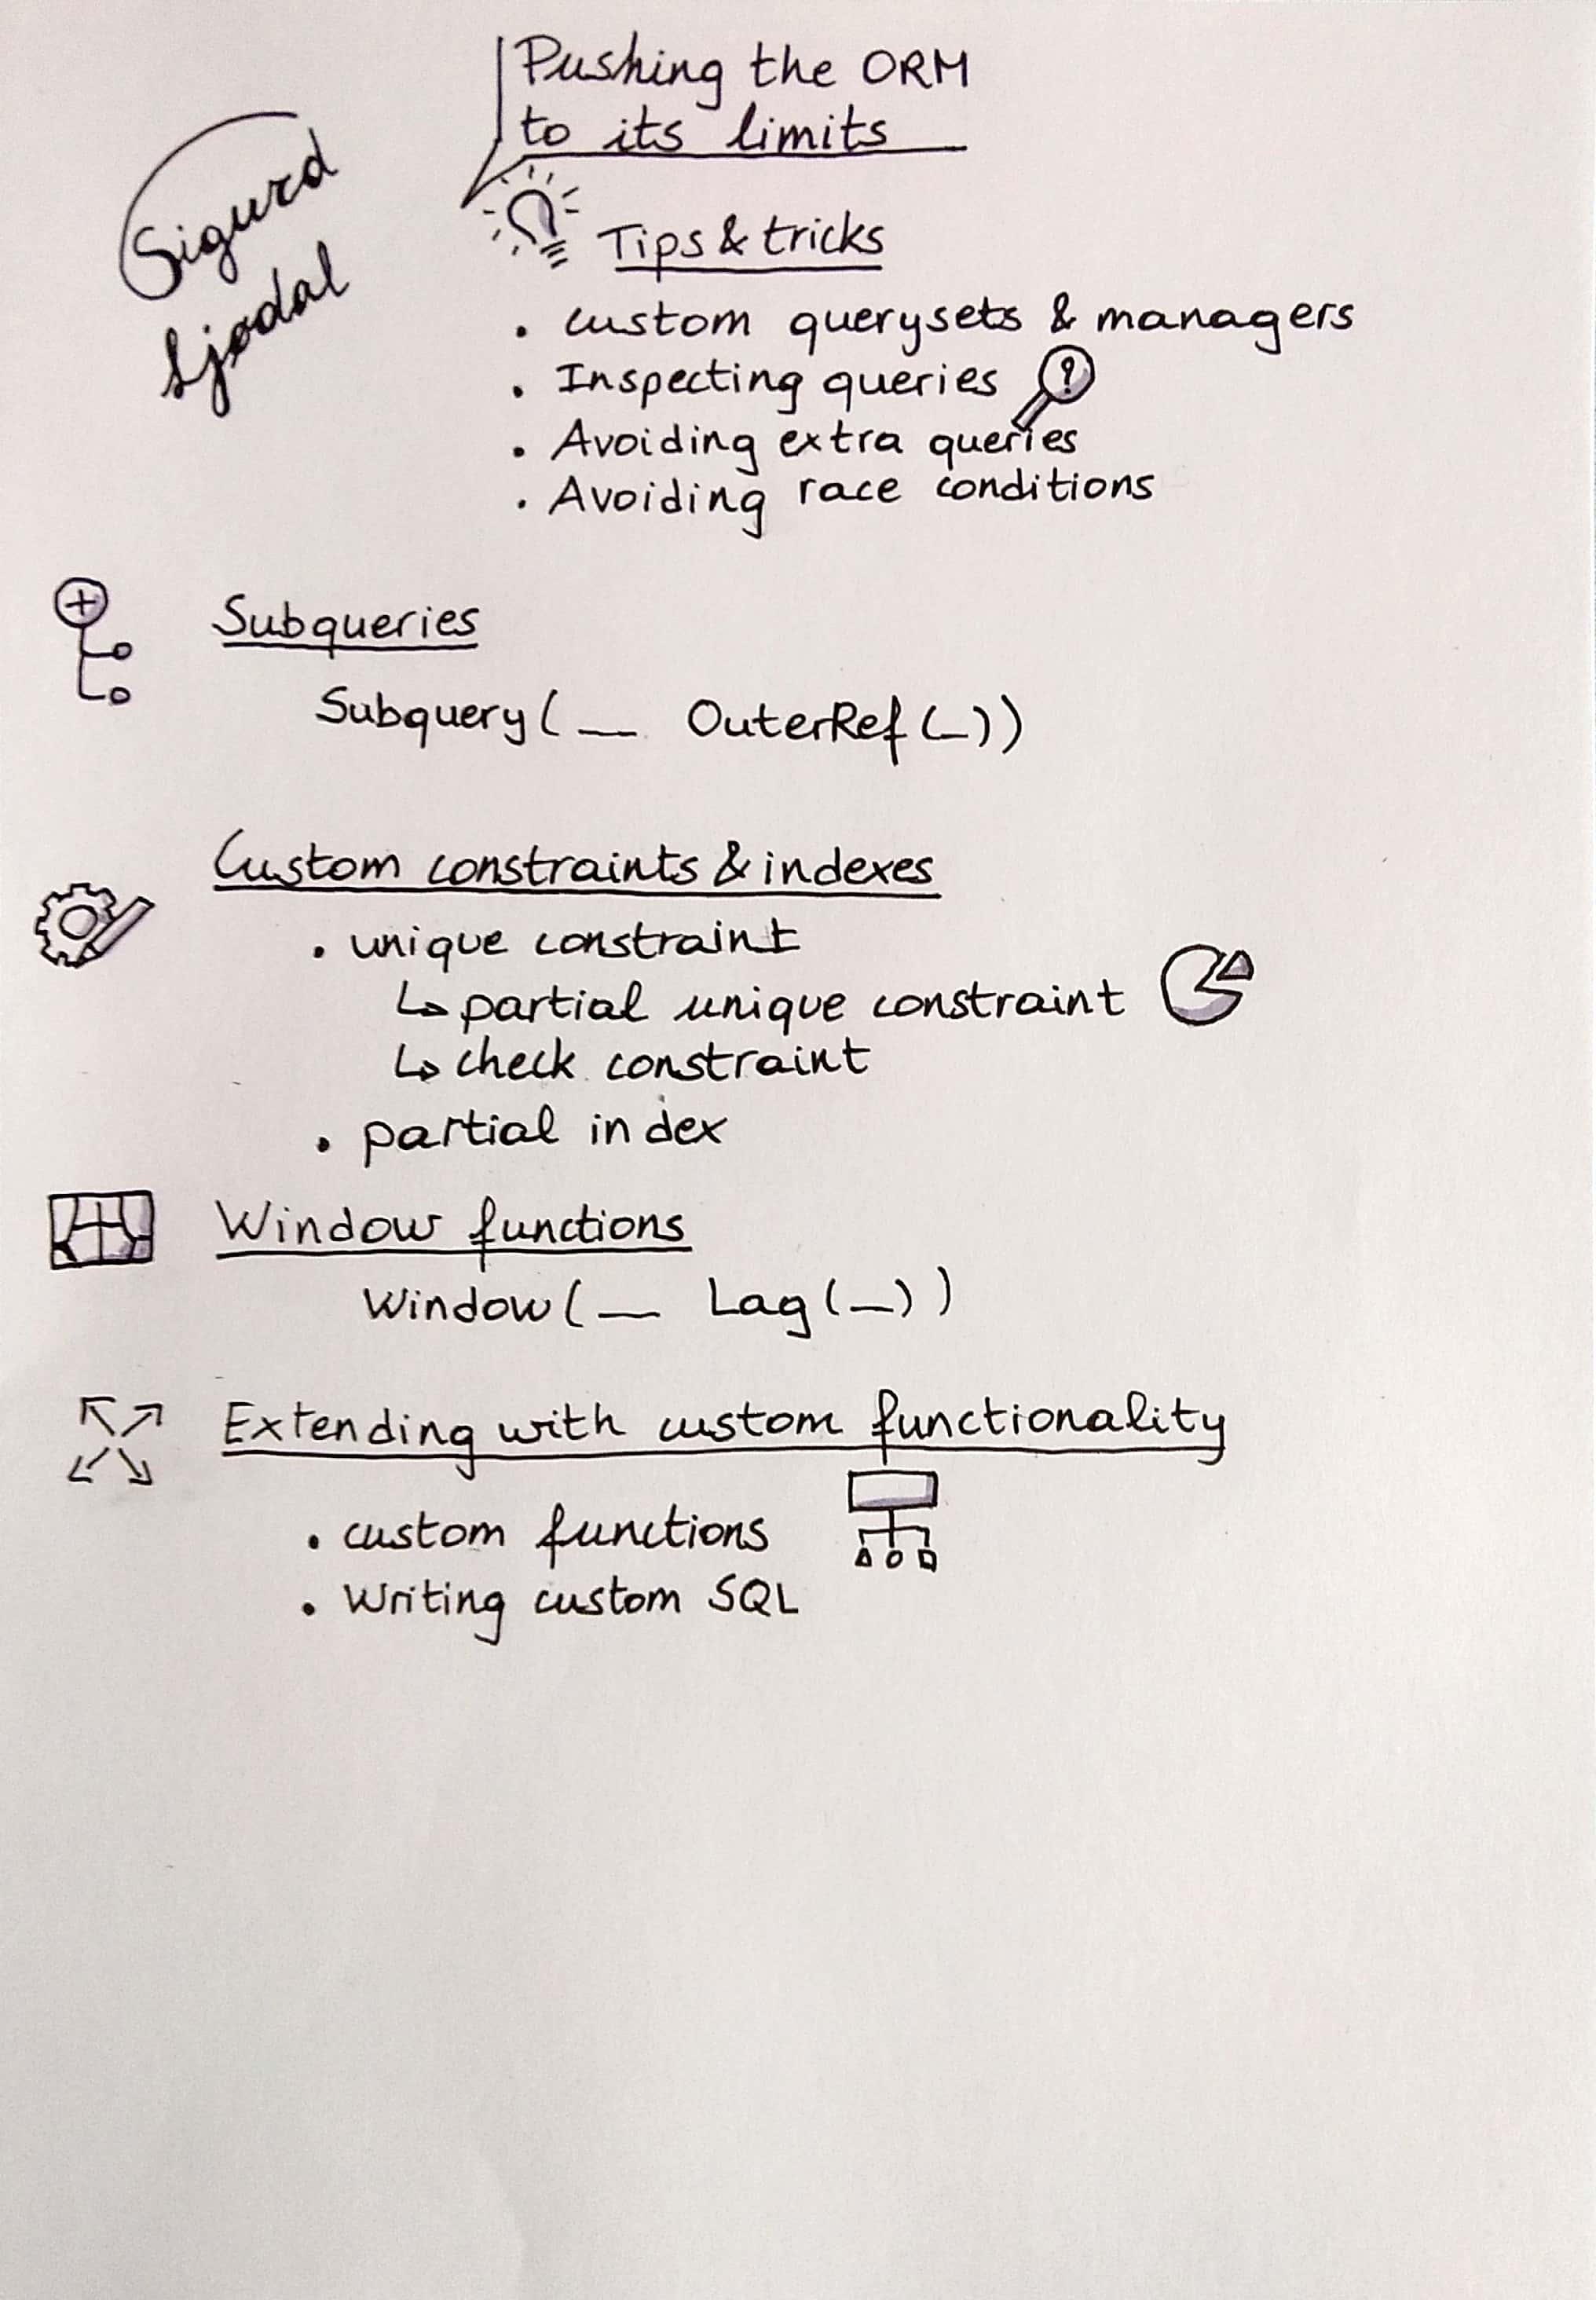 Pushing the ORM
to its limits
Sigurd
Ljodal
Tips & tricks
• custom querysets & managers
• Inspecting queries ?
• Avoiding extra queries
• Avoiding race conditions
Subqueries
Subquery( __ OuterRef(_))
Custom constraints & indexes
• unique constraint
↳ partial unique constraint
↳ check constraint
• partial index
Window functions
Window( __ Lag(_))
Extending with custom functionality
• custom functions
• Writing custom SQL